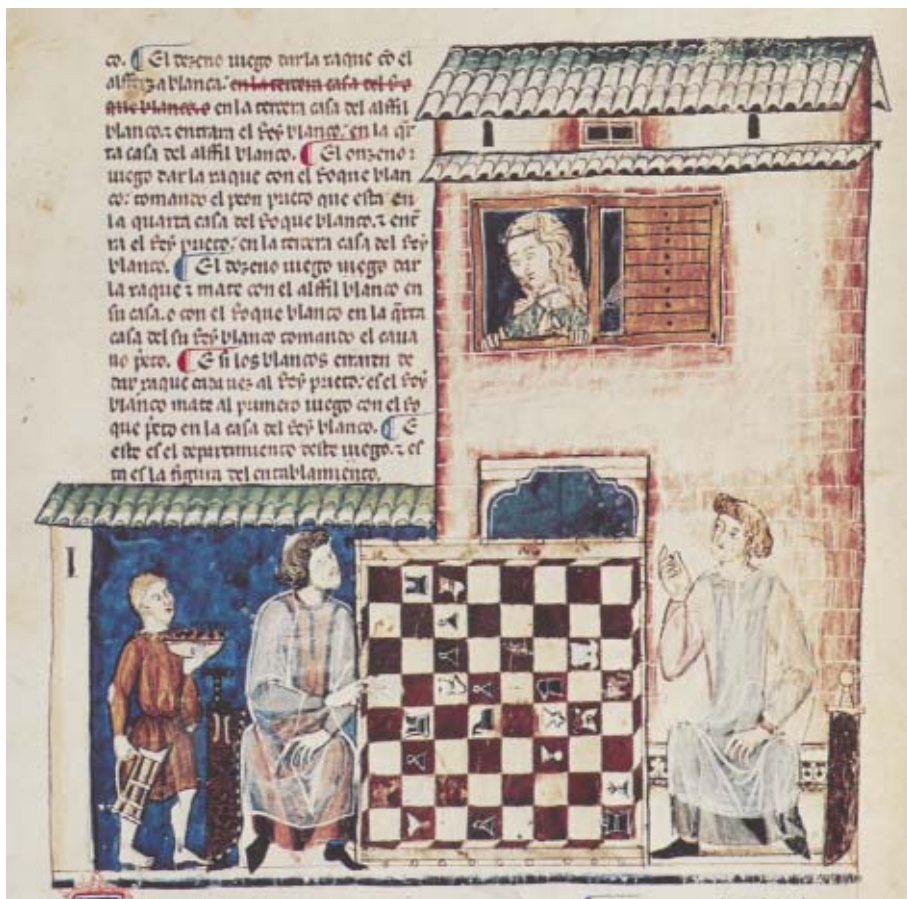 co. El dozeno iuego dar la xaque cõ el
alfferza blanca. en la tercera casa del Ro
que blanco. o en la tercera casa del alffil
blanco. τ entrara el Rey blanco. en la q̃r
ta casa del alffil blanco. El onzeno
iuego dar la xaque con el Roque blan
co. tomando el peon prieto que esta en
la quarta casa del Roque blanco. τ entr̃
ra el Rey prieto. en la tercera casa del Rey
blanco. El dozeno iuego iuego dar
la xaque τ mate con el alffil blanco en
su casa. o con el Roque blanco en la q̃rta
casa del su Rey blanco tomando el caua
llo p̃eto. E si los blancos erraren de
dar xaque cada uez al Rey prieto. es el Rey
blanco mate al primero iuego con el Ro
que p̃eto en la casa del Rey blanco. E
este es el departimiento deste iuego. τ es
ta es la figura del entablamiento.